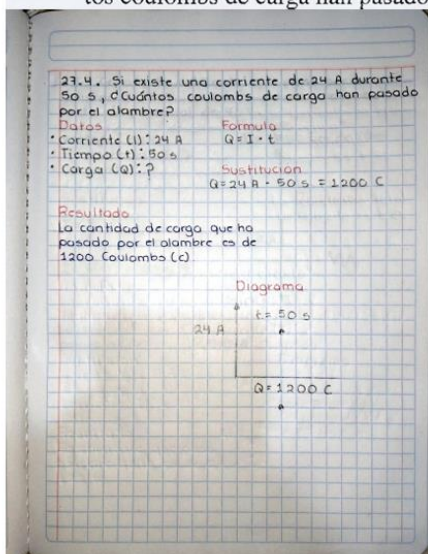 tos coulombs de carga han pasado
27.4. Si existe una corriente de 24 A durante
50 s, ¿Cuántos coulombs de carga han pasado
por el alambre?
Datos
Formula
• Corriente (I): 24 A
Q = I · t
• Tiempo (t): 50 s
• Carga (Q): ?
Sustitución
Q = 24 A · 50 s = 1200 C
Resultado
La cantidad de carga que ha
pasado por el alambre es de
1200 Coulombs (c)
Diagrama
t = 50 s
24 A
Q = 1200 C